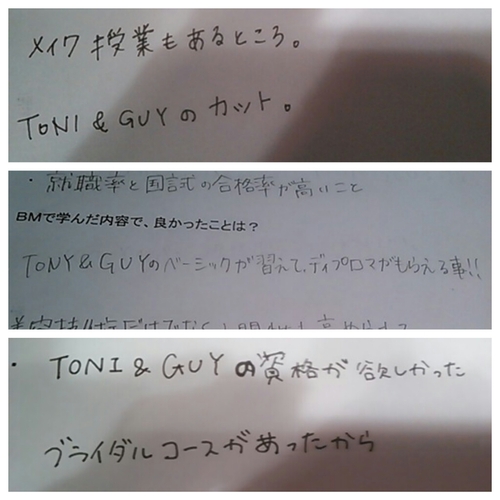 メイク授業もあるところ。
TONI & GUYのカット。
・就職率と国試の合格率が高いこと
BMで学んだ内容で、良かったことは？
TONY&GUYのベーシックが習えて、ディプロマがもらえる事!!
・TONI & GUYの資格が欲しかった
ブライダルコースがあったから